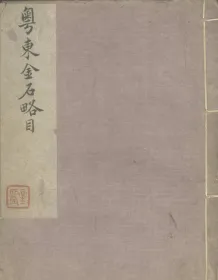 粵東金石略目